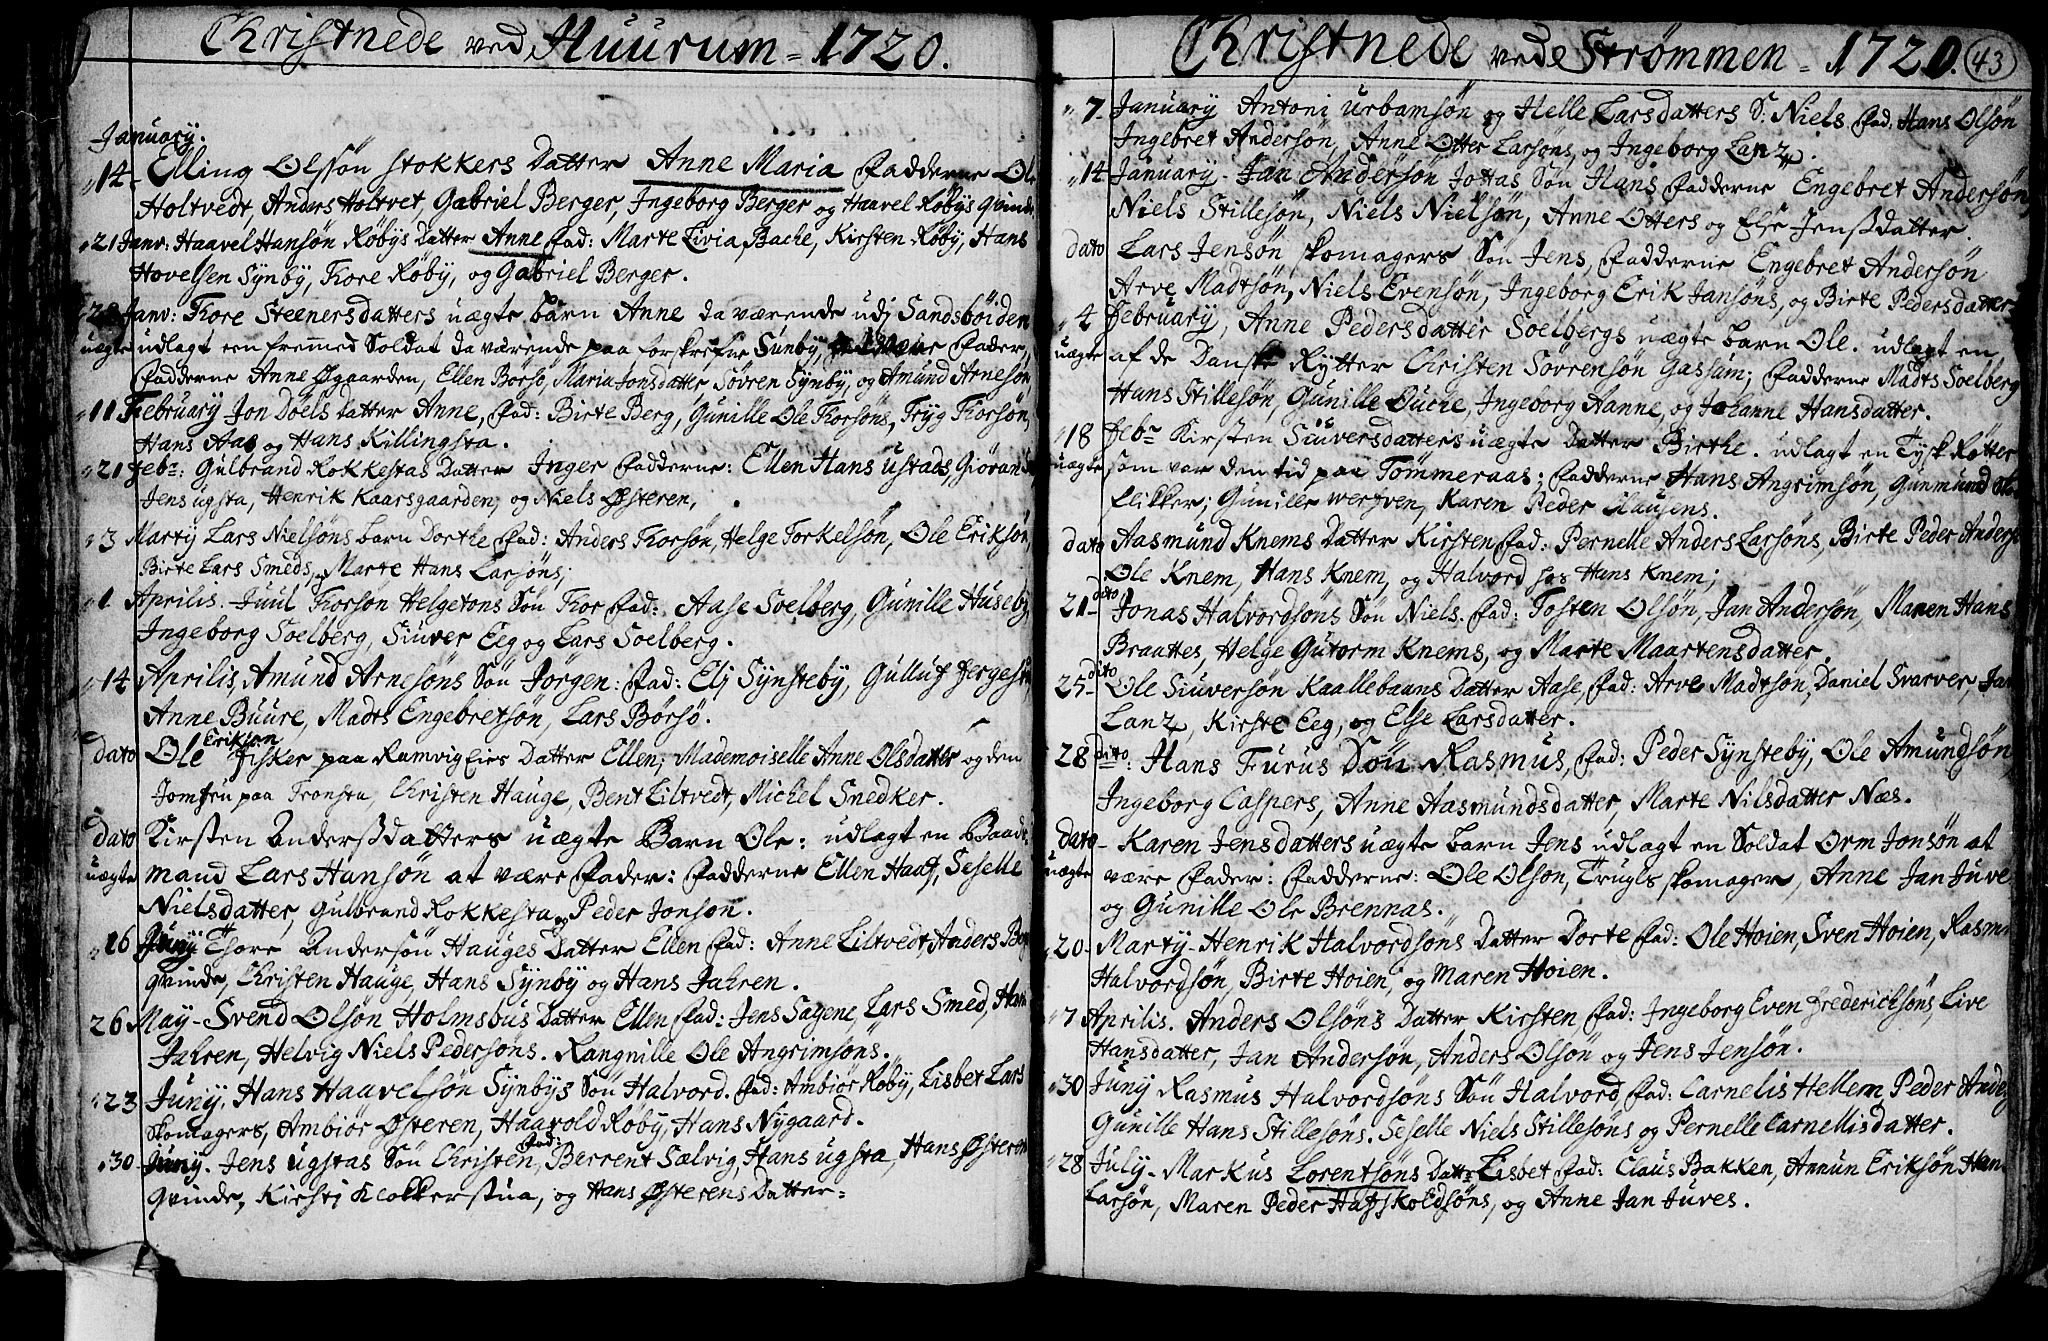 Christnede ved Huurum = 1720.
January.
14 - Elling Olssön Stokkers Datter Anne Maria Fadderne Ole
Holtvedt, Anders Holtvet, Gabriel Berger, Ingeborg Berger og Haavel Röbys qvinde
21 Janv: Haavel Hansön Röbys Datter Anne Fad: Marte Livia Bache, Kirsten Röby, Hans
Hovelsen Synby, Tore Röby, og Gabriel Berger.
28 Janv: Tore Steenersdatters uægte barn Anne da værende udj Sandsböiden
uægte udlagt een fremmed Soldat da værende paa forskrefne Sunby, Fader,
Fadderne Anne Øgaarden, Ellen Börsö, Maria Jonsdatter Sövren Synby, og Amund Arnesön
11 February Jon Döels datter Anne, Fad: Birte Berg, Gunille Ole Torsöns, Tryg Torsön,
Hans Aas og Hans Killingsta.
21 Feb: Gulbrand Rokkestas Datter Inger Fadderne: Ellen Hans Ustads, Giöran
Jens ugsta, Henrik Kaarsgaarden, og Niels Østeren,
3 Marty Lars Nielsöns barn Dorthe Fad: Anders Torsön, Helge Torkelsön, Ole Eriksön,
Birte Lars Smeds, og Marte Hans Larsöns;
1 Aprilis. Juul Torson Helgetons Sön Tor Fad: Aase Soelberg, Gunille Huseby
Ingeborg Soelberg, Siuver Eeg og Lars Soelberg.
14 Aprilis, Amund Arnesöns Sön Jörgen: Fad: Elj Synsteby, Gulluf
Anne Buure, Madts Engebretsön, Lars Börsö.
dato Ole Erikson Fisker paa Ramvig Eies Datter Ellen; Mademoiselle Anne Olsdatter og den
Jomfru paa Tronsta, Christen Hauge, Bent Liltvedt, Michel Snedker.
dato Kirsten Andersdatters uægte Barn Ole: udlagt en Baads
uægte mand Lars Hansön at være Fader: Fadderne Ellen Haas, Seselle
Nielsdatter, Gulbrand Rokkesta og Peder Jonson.
16 Juny Thore Andersön Hauges Datter Ellen Fad: Anne Liltvedt, Anders
qvinde, Christen Hauge, Hans Synby og Hans Jahren.
26 May - Svend Olsön Holmsbus Datter Ellen Fad: Jens Sagene, Lars Smed, Hans
Jahren, Helvig Niels Pedersöns. Rangnille Ole Angrimsöns.
23 Juny, Hans Haavelsön Synbys Sön Halvord. Fad: Ambiör Röby, Lisbet Lars
Skomagers, Ambiör Østeren, Haavold Röby, Hans Nygaard.
30 - Juny. Jens ugstas Sön Christen, Fad: Berrent Sælvig, Hans ugsta, Hans Østerens
qvinde, Kirstj Klokkerstua, og Hans Østerens Datter =
Christnede ved Strömmen = 1720. 43
7 - January Antoni Urbamsön og Helle Larsdatters S: Niels Fad. Hans Olsön
Ingebret Andersön, Anne Otter Larsöns, og Ingeborg Lanz.
14 January - Jan Andersön Jottas Sön Hans Fadderne Engebret Andersön,
Niels Stillesön, Niels Nielsön, Anne Otters og Else Jensdatter.
dato Lars Jensön Skomagers Sön Jens, Fadderne Engebret Andersön
Arve Madtsön, Niels Evensön, Ingeborg Erik Jansöns, og Birte Pedersdatter
4 February, Anne Pedersdatter Soelbergs uægte barn Ole. udlagt en
uægte af de Danske Rytter Christen Sövrensön Gassum; Fadderne Madts Soelberg
Hans Stillesön, Gunille Ducre, Ingeborg Aanne, og Johanne Hansdatter.
18 Febr Kirsten Siuversdatters uægte Datter Birthe. udlagt en Tysk Rötter
uægte som var den tid paa Tömmeraas; Fadderne Hans Angrimsön, Gunmund Ole
Clikker; Gunille Wersven, Karen Peder Clausens.
dato Aasmund Knems Datter Kirsten, Fad: Pernelle Anders Larsöns, Birte Peder Anders
Ole Knem, Hans Knem, og Halvord hos Hans Knem;
21 - dito Jonas Halvordsöns Sön Niels. Fad: Tosten Olsön, Jan Andersön, Maren Hans
Braattes, Helge Gutorm Knems, og Marte Maartensdatter
25 - dito Ole Siuversön Kaallebauns Datter Aase, Fad: Arve Madtsön, Daniel Svarver, Jan
Lanz, Kirste Eeg, og Else Larsdatter.
28 dito. Hans Furus Sön Rasmus, Fad: Peder Synsteby, Ole Amundsön,
Ingeborg Caspers, Anne Aasmundsdatter, Marte Nilsdatter Næs.
dato - Karen Jensdatters uægte barn Jens udlagt en Soldat Orm Jonsön at
uægte være Fader: Fadderne: Ole Olsön, Trugls Skomager, Anne Jan Juve
og Gunille Ole Brennas.
20 - Marty - Henrik Halvordsöns Datter Dorte Fad: Ole Høien, Sven Høien, Rasmus
Halvordsön, Birte Høien, og Maren Høien.
7 Aprilis. Anders Olsöns Datter Kirsten, Fad: Ingeborg Even Frederichsöns, Live
Hansdatter, Jan Andersön, Anders Olsön og Jens Jensön.
30 Juny Rasmus Halvordsöns Sön Halvord, Fad: Carnelis Hellem, Peder Anders
Gunille Hans Stillesöns. Seselle Niels Stillesöns og Pernelle Carnellisdatter.
28 July - Markus Lorentsöns Datt: Lisbet Fad: Claus Bakken, Annun Eriksön Hans
Larsön, Maren Peder Hafskoldsöns, og Anne Jan Juves.